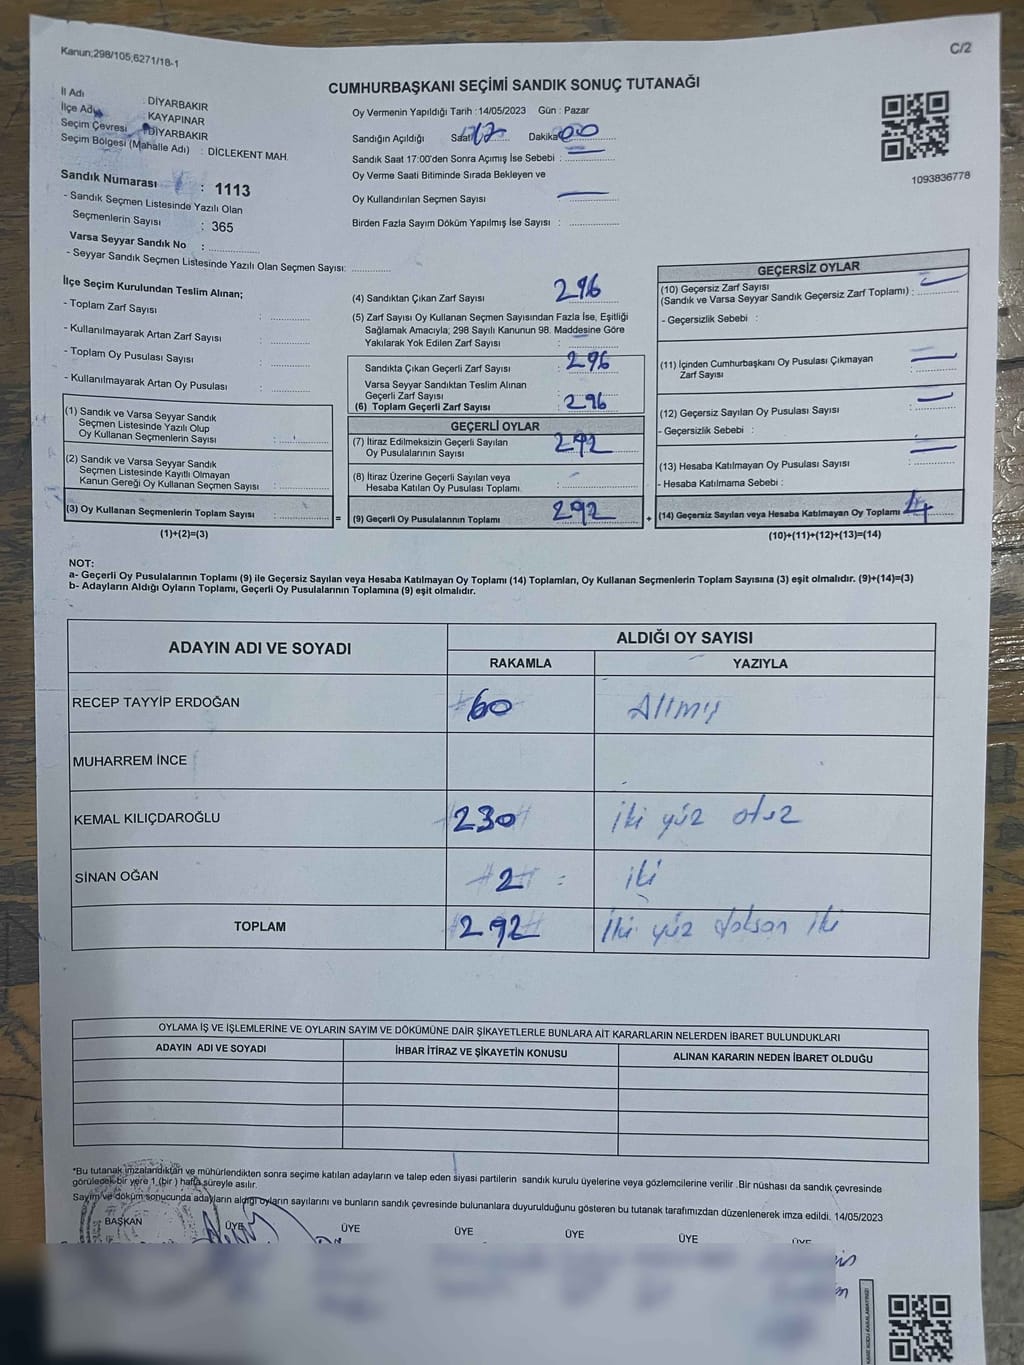 Kanun;298/105;6271/18-1
C/2
CUMHURBAŞKANI SEÇİMİ SANDIK SONUÇ TUTANAĞI
İl Adı : DİYARBAKIR
İlçe Adı : KAYAPINAR
Seçim Çevresi : DİYARBAKIR
Seçim Bölgesi (Mahalle Adı) : DİCLEKENT MAH.
Sandık Numarası : 1113
- Sandık Seçmen Listesinde Yazılı Olan
Seçmenlerin Sayısı : 365
Varsa Seyyar Sandık No :
- Seyyar Sandık Seçmen Listesinde Yazılı Olan Seçmen Sayısı:
Oy Vermenin Yapıldığı Tarih :14/05/2023 Gün : Pazar
Sandığın Açıldığı Saat 17 Dakika 00
Sandık Saat 17:00'den Sonra Açımış İse Sebebi :
Oy Verme Saati Bitiminde Sırada Bekleyen ve
Oy Kullandırılan Seçmen Sayısı
Birden Fazla Sayım Döküm Yapılmış İse Sayısı :
1093836778
İlçe Seçim Kurulundan Teslim Alınan;
- Toplam Zarf Sayısı :
- Kullanılmayarak Artan Zarf Sayısı :
- Toplam Oy Pusulası Sayısı :
- Kullanılmayarak Artan Oy Pusulası :
(1) Sandık ve Varsa Seyyar Sandık
Seçmen Listesinde Yazılı Olup
Oy Kullanan Seçmenlerin Sayısı :
(2) Sandık ve Varsa Seyyar Sandık
Seçmen Listesinde Kayıtlı Olmayan
Kanun Gereği Oy Kullanan Seçmen Sayısı :
(3) Oy Kullanan Seçmenlerin Toplam Sayısı :
(1)+(2)=(3)
=
(4) Sandıktan Çıkan Zarf Sayısı : 296
(5) Zarf Sayısı Oy Kullanan Seçmen Sayısından Fazla İse, Eşitliği
Sağlamak Amacıyla; 298 Sayılı Kanunun 98. Maddesine Göre
Yakılarak Yok Edilen Zarf Sayısı :
Sandıkta Çıkan Geçerli Zarf Sayısı : 296
Varsa Seyyar Sandıktan Teslim Alınan
Geçerli Zarf Sayısı :
(6) Toplam Geçerli Zarf Sayısı : 296
GEÇERLİ OYLAR
(7) İtiraz Edilmeksizin Geçerli Sayılan
Oy Pusulalarının Sayısı : 292
(8) İtiraz Üzerine Geçerli Sayılan veya
Hesaba Katılan Oy Pusulası Toplamı :
(9) Geçerli Oy Pusulalarının Toplamı : 292
+
GEÇERSİZ OYLAR
(10) Geçersiz Zarf Sayısı
(Sandık ve Varsa Seyyar Sandık Geçersiz Zarf Toplamı) :
- Geçersizlik Sebebi :
(11) İçinden Cumhurbaşkanı Oy Pusulası Çıkmayan
Zarf Sayısı :
(12) Geçersiz Sayılan Oy Pusulası Sayısı :
- Geçersizlik Sebebi :
(13) Hesaba Katılmayan Oy Pusulası Sayısı :
- Hesaba Katılmama Sebebi :
(14) Geçersiz Sayılan veya Hesaba Katılmayan Oy Toplamı : 4
(10)+(11)+(12)+(13)=(14)
NOT:
a- Geçerli Oy Pusulalarının Toplamı (9) ile Geçersiz Sayılan veya Hesaba Katılmayan Oy Toplamı (14) Toplamları, Oy Kullanan Seçmenlerin Toplam Sayısına (3) eşit olmalıdır. (9)+(14)=(3)
b- Adayların Aldığı Oyların Toplamı, Geçerli Oy Pusulalarının Toplamına (9) eşit olmalıdır.
ADAYIN ADI VE SOYADI ALDIĞI OY SAYISI
RAKAMLA YAZIYLA
RECEP TAYYİP ERDOĞAN #60 Altmış
MUHARREM İNCE
KEMAL KILIÇDAROĞLU #230# İki yüz otuz
SİNAN OĞAN #2# : iki
TOPLAM #292# İki yüz doksan iki
OYLAMA İŞ VE İŞLEMLERİNE VE OYLARIN SAYIM VE DÖKÜMÜNE DAİR ŞİKAYETLERLE BUNLARA AİT KARARLARIN NELERDEN İBARET BULUNDUKLARI
ADAYIN ADI VE SOYADI İHBAR İTİRAZ VE ŞİKAYETİN KONUSU ALINAN KARARIN NEDEN İBARET OLDUĞU
*Bu tutanak imzalandıktan ve mühürlendikten sonra seçime katılan adayların ve talep eden siyasi partilerin sandık kurulu üyelerine veya gözlemcilerine verilir .Bir nüshası da sandık çevresinde
görülecek bir yere 1 (bir ) hafta süreyle asılır.
Sayım ve döküm sonucunda adayların aldığı oyların sayılarını ve bunların sandık çevresinde bulunanlara duyurulduğunu gösteren bu tutanak tarafımızdan düzenlenerek imza edildi. 14/05/2023
BAŞKAN ÜYE ÜYE ÜYE ÜYE ÜYE ÜYE